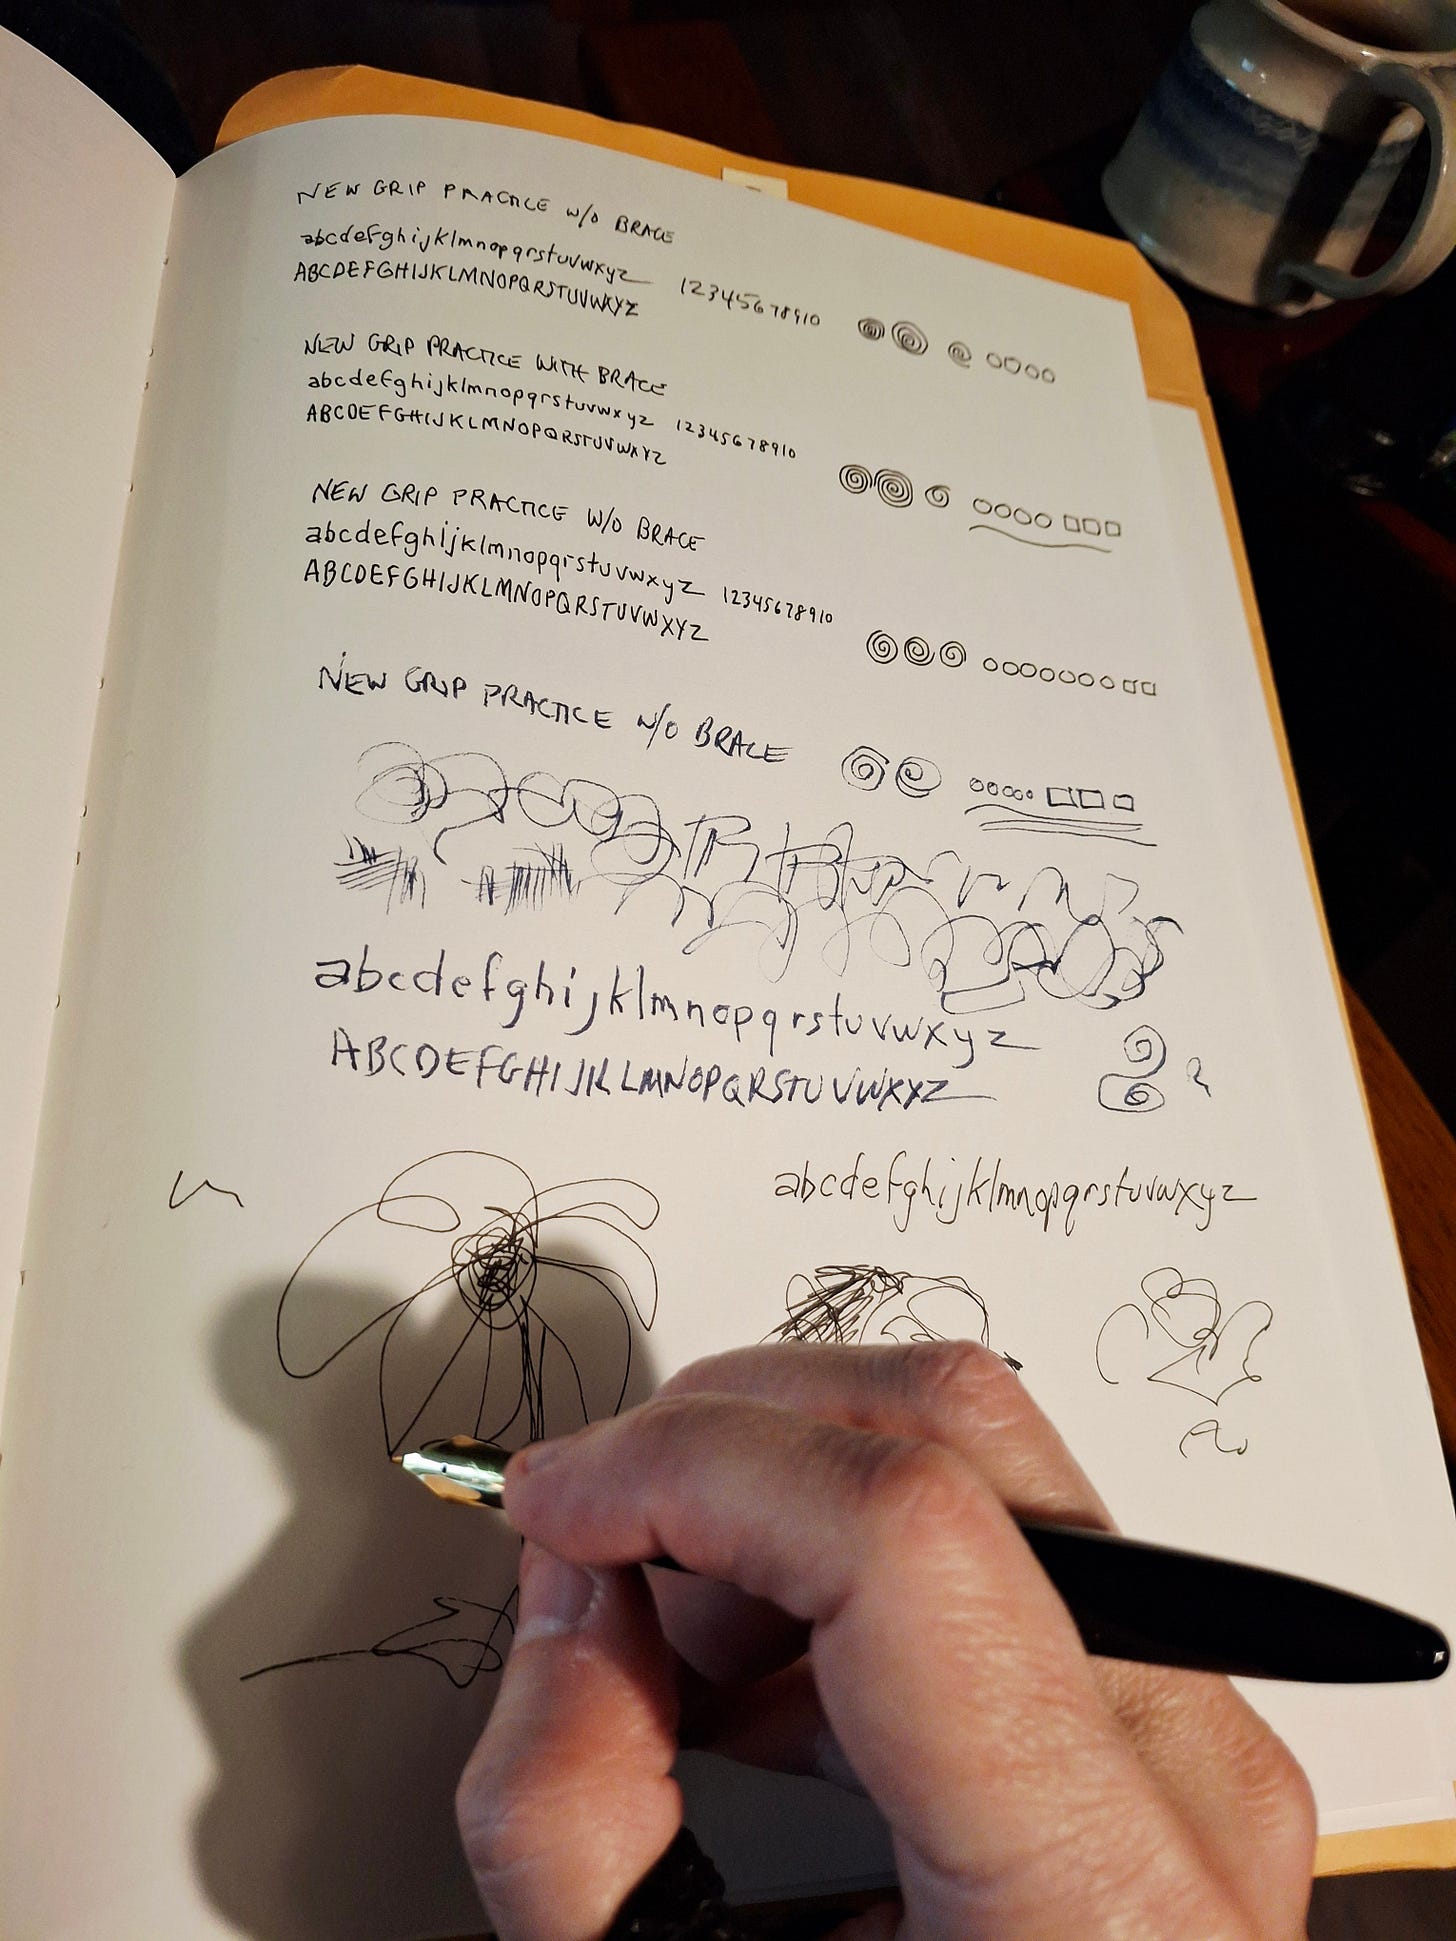 NEW GRIP PRACTICE W/O BRACE
abcdefghijklmnopqrstuvwxyz 12345678910
ABCDEFGHIJKLMNOPQRSTUVWXYZ
NEW GRIP PRACTICE WITH BRACE
abcdefghijklmnopqrstuvwxyz 12345678910
ABCDEFGHIJKLMNOPQRSTUVWXYZ
NEW GRIP PRACTICE W/O BRACE
abcdefghijklmnopqrstuvwxyz 12345678910
ABCDEFGHIJKLMNOPQRSTUVWXYZ
NEW GRIP PRACTICE W/O BRACE
abcdefghijklmnopqrstuvwxyz
ABCDEFGHIJKLMNOPQRSTUVWXYZ
abcdefghijklmnopqrstuvwxyz